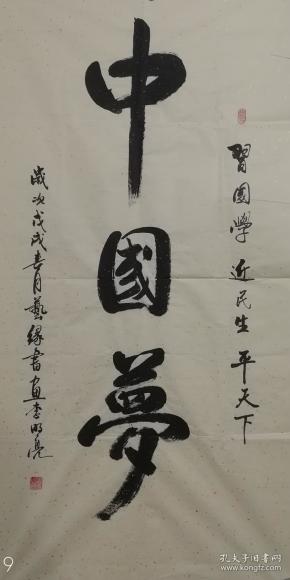 習國學 近民生 平天下
中國夢
歲次戊戌春月藝緣書画李明亮
9
孔夫子旧书网
kongfz.com